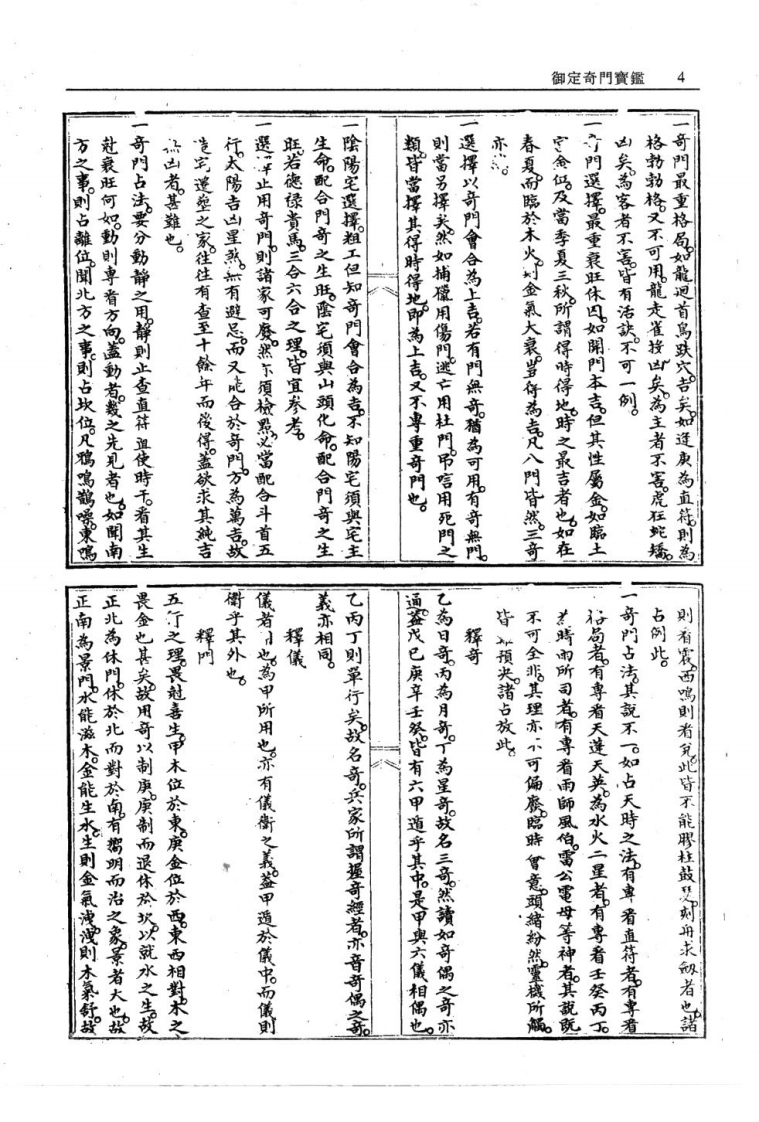 御定奇門寶鑑 4
一奇門最重格局。如龍廻首鳥跌穴。吉矣。如逢庚為直符。則為
格勃勃格。又不可用。龍走雀投凶矣。為主者不害。虎狂蛇矯。
凶矣。為客者不害。皆有活訣。不可一例。
一門選擇。最重衰旺休囚。如開門本吉。但其性屬金。如臨土
金位。及當季夏三秋。所謂得時得地。時之最吉者也。如在
春夏。而臨於木火。則金氣大衰。豈得為吉。凡八門皆然。三奇
亦
一選擇以奇門會合為上吉。若有門無奇。猶為可用。有奇無門。
則當另擇矣。然如捕獵用傷門。逃亡用杜門。弔唁用死門之
類。皆當擇其得時得地。即為上吉。又不專重奇門也。
一陰陽宅選擇。粗工但知奇門會合為吉。不知陽宅須與宅主
生命。配合門奇之生旺。陰宅須與山頭化命。配合門奇之生
旺。若德祿貴馬。三合六合之理。皆宜參考。
一選止用奇門。則諸家可廢。然亦須檢點。必當配合斗首五
行。太陽吉凶星煞。無有避忌。而又能合於奇門。方為萬吉。故
造宅遷塋之家。往往有查至十餘年而後得。蓋欲求其純吉
凶者。甚難也。
一奇門占法。要分動靜之用。靜則止查直符直使時干。看其生
尅衰旺何如。動則專看方向。蓋動者。幾之先見者也。如聞南
方之事。則占離位。聞北方之事。則占坎位。凡鴉鳴鵲噪。東鳴
則看震。西鳴則看兌。此皆不能膠柱鼓瑟。刻舟求劍者也。諸
占例此。
一奇門占法。其說不一。如占天時之法。有專看直符者。有專看
格局者。有專看天蓬天英。為水火二星者。有專看壬癸丙丁。
為時雨所司者。有專看雨師風伯。雷公電母等神者。其說既
不可全非。其理亦不可偏廢。臨時會意。頭緒紛然。靈機所觸。
皆預決。諸占放此。
釋奇
乙為日奇。丙為月奇。丁為星奇。故名三奇。然讀如奇偶之奇亦
通。蓋戊己庚辛壬癸。皆有六甲遁乎其中。是甲與六儀相偶也。
乙丙丁則單行矣。故名奇。兵家所謂握奇經者。亦音奇偶之奇。
義亦相同。
釋儀
儀者也。為甲所用也。亦有儀衛之義。蓋甲遁於儀中。而儀則
衛乎其外也。
釋門
五行之理。畏尅喜生。甲木位於東。庚金位於西。東西相對。木之
畏金也甚矣。故用奇以制庚。庚制而退休於坎。以就水之生。故
正北為休門。休於北而對於南。有嚮明而治之象。景者大也。故
正南為景門。水能滋木。金能生水。生則金氣洩。洩則木氣舒。故